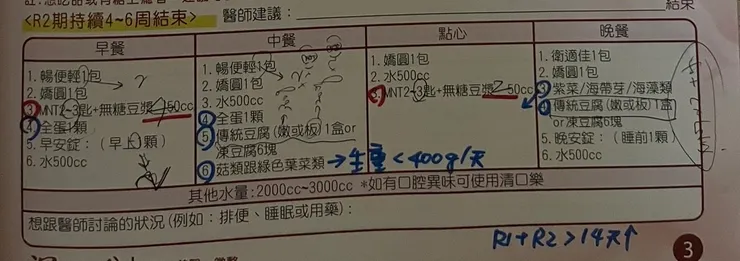 <R2期持續4~6周結束>
醫師建議：
結束
早餐
1. 暢便輕1包
2. 嬌圓1包
3. MNT2~3匙+無糖豆漿450cc
4. 全蛋1顆
5. 早安錠：(早上1顆)
6. 水500cc
中餐
1. 暢便輕1包
2. 嬌圓1包
3. 水500cc
4. 全蛋1顆
5. 傳統豆腐(嫩或板)1盒or
凍豆腐6塊
6. 菇類跟綠色葉菜類 → 生重<400g/天
點心
1. 嬌圓1包
2. 水500cc
3. MNT2~3匙+無糖豆漿250cc
晚餐
1. 衛適佳1包
2. 嬌圓1包
3. 紫菜/海帶芽/海藻類
4. 傳統豆腐(嫩或板)1盒
or凍豆腐6塊
5. 晚安錠：(睡前1顆)
6. 水500cc
其他水量:2000cc~3000cc *如有口腔異味可使用清口樂
想跟醫師討論的狀況(例如：排便、睡眠或用藥)：
R1+R2>14天↑
3